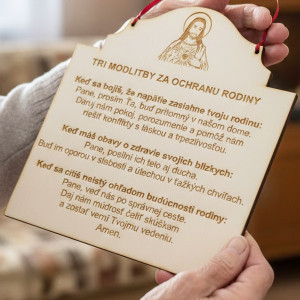 TRI MODLITBY ZA OCHRANU RODINY
Keď sa bojíš, že napätie zasiahne tvoju rodinu:
Pane, prosím Ťa, buď prítomný v našom dome.
Daruj nám pokoj, porozumenie a pomôž nám
riešiť konflikty s láskou a trpezlivosťou.
Keď máš obavy o zdravie svojich blízkych:
Pane, posilni ich telo aj ducha.
Buď im oporou v slabosti a útechou v ťažkých chvíľach.
Keď sa cítiš neistý ohľadom budúcnosti rodiny:
Pane, veď nás po správnej ceste.
Daj nám múdrosť čeliť skúškam
a zostať verní Tvojmu vedeniu.
Amen.